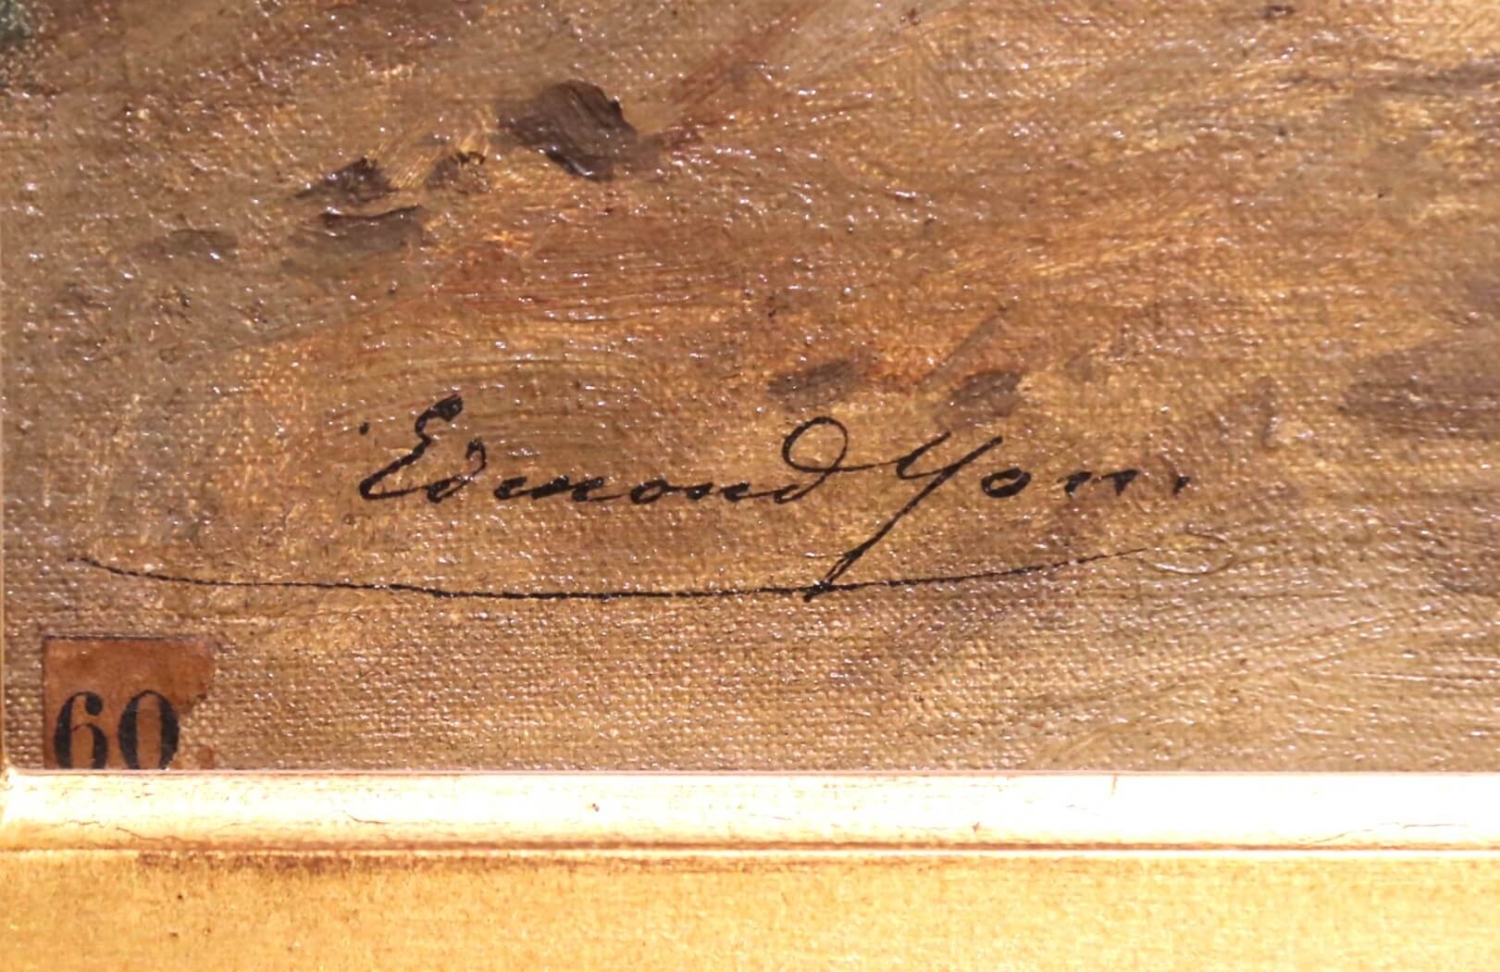 Edmond Yon.
60